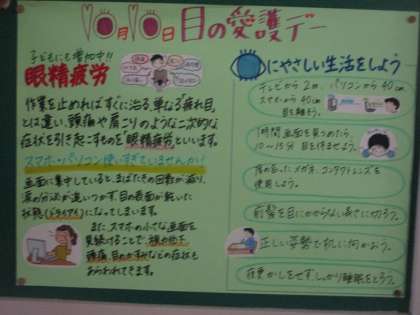 10月10日 目の愛護デー
子どもにも増加中!!
眼精疲労
作業を止めればすぐに治る、単なる「疲れ目」
とは違い、頭痛や肩こりのような二次的な
症状を引き起こすものを眼精疲労といいます。
スマホ・パソコン使いすぎていませんか!
画面に集中していると、まばたきの回数が減り、
涙の分泌が追いつかず、目の表面が乾いた
状態(ドライアイ)になってしまいます。
また、スマホの小さな画面を
見続けることで、
頭痛、目のかすみなどの症状も
あらわれてきます。
にやさしい生活をしよう
テレビから2m、パソコンから40cm
スマホから40cm
目を離そう。
1時間画面を見つめたら、
10〜15分目を休ませよう。
度の合ったメガネ、コンタクトレンズを
使用しよう。
前髪を目にかからない長さに切ろう。
正しい姿勢で机に向かおう。
夜更かしをせず、しっかり睡眠をとろう。